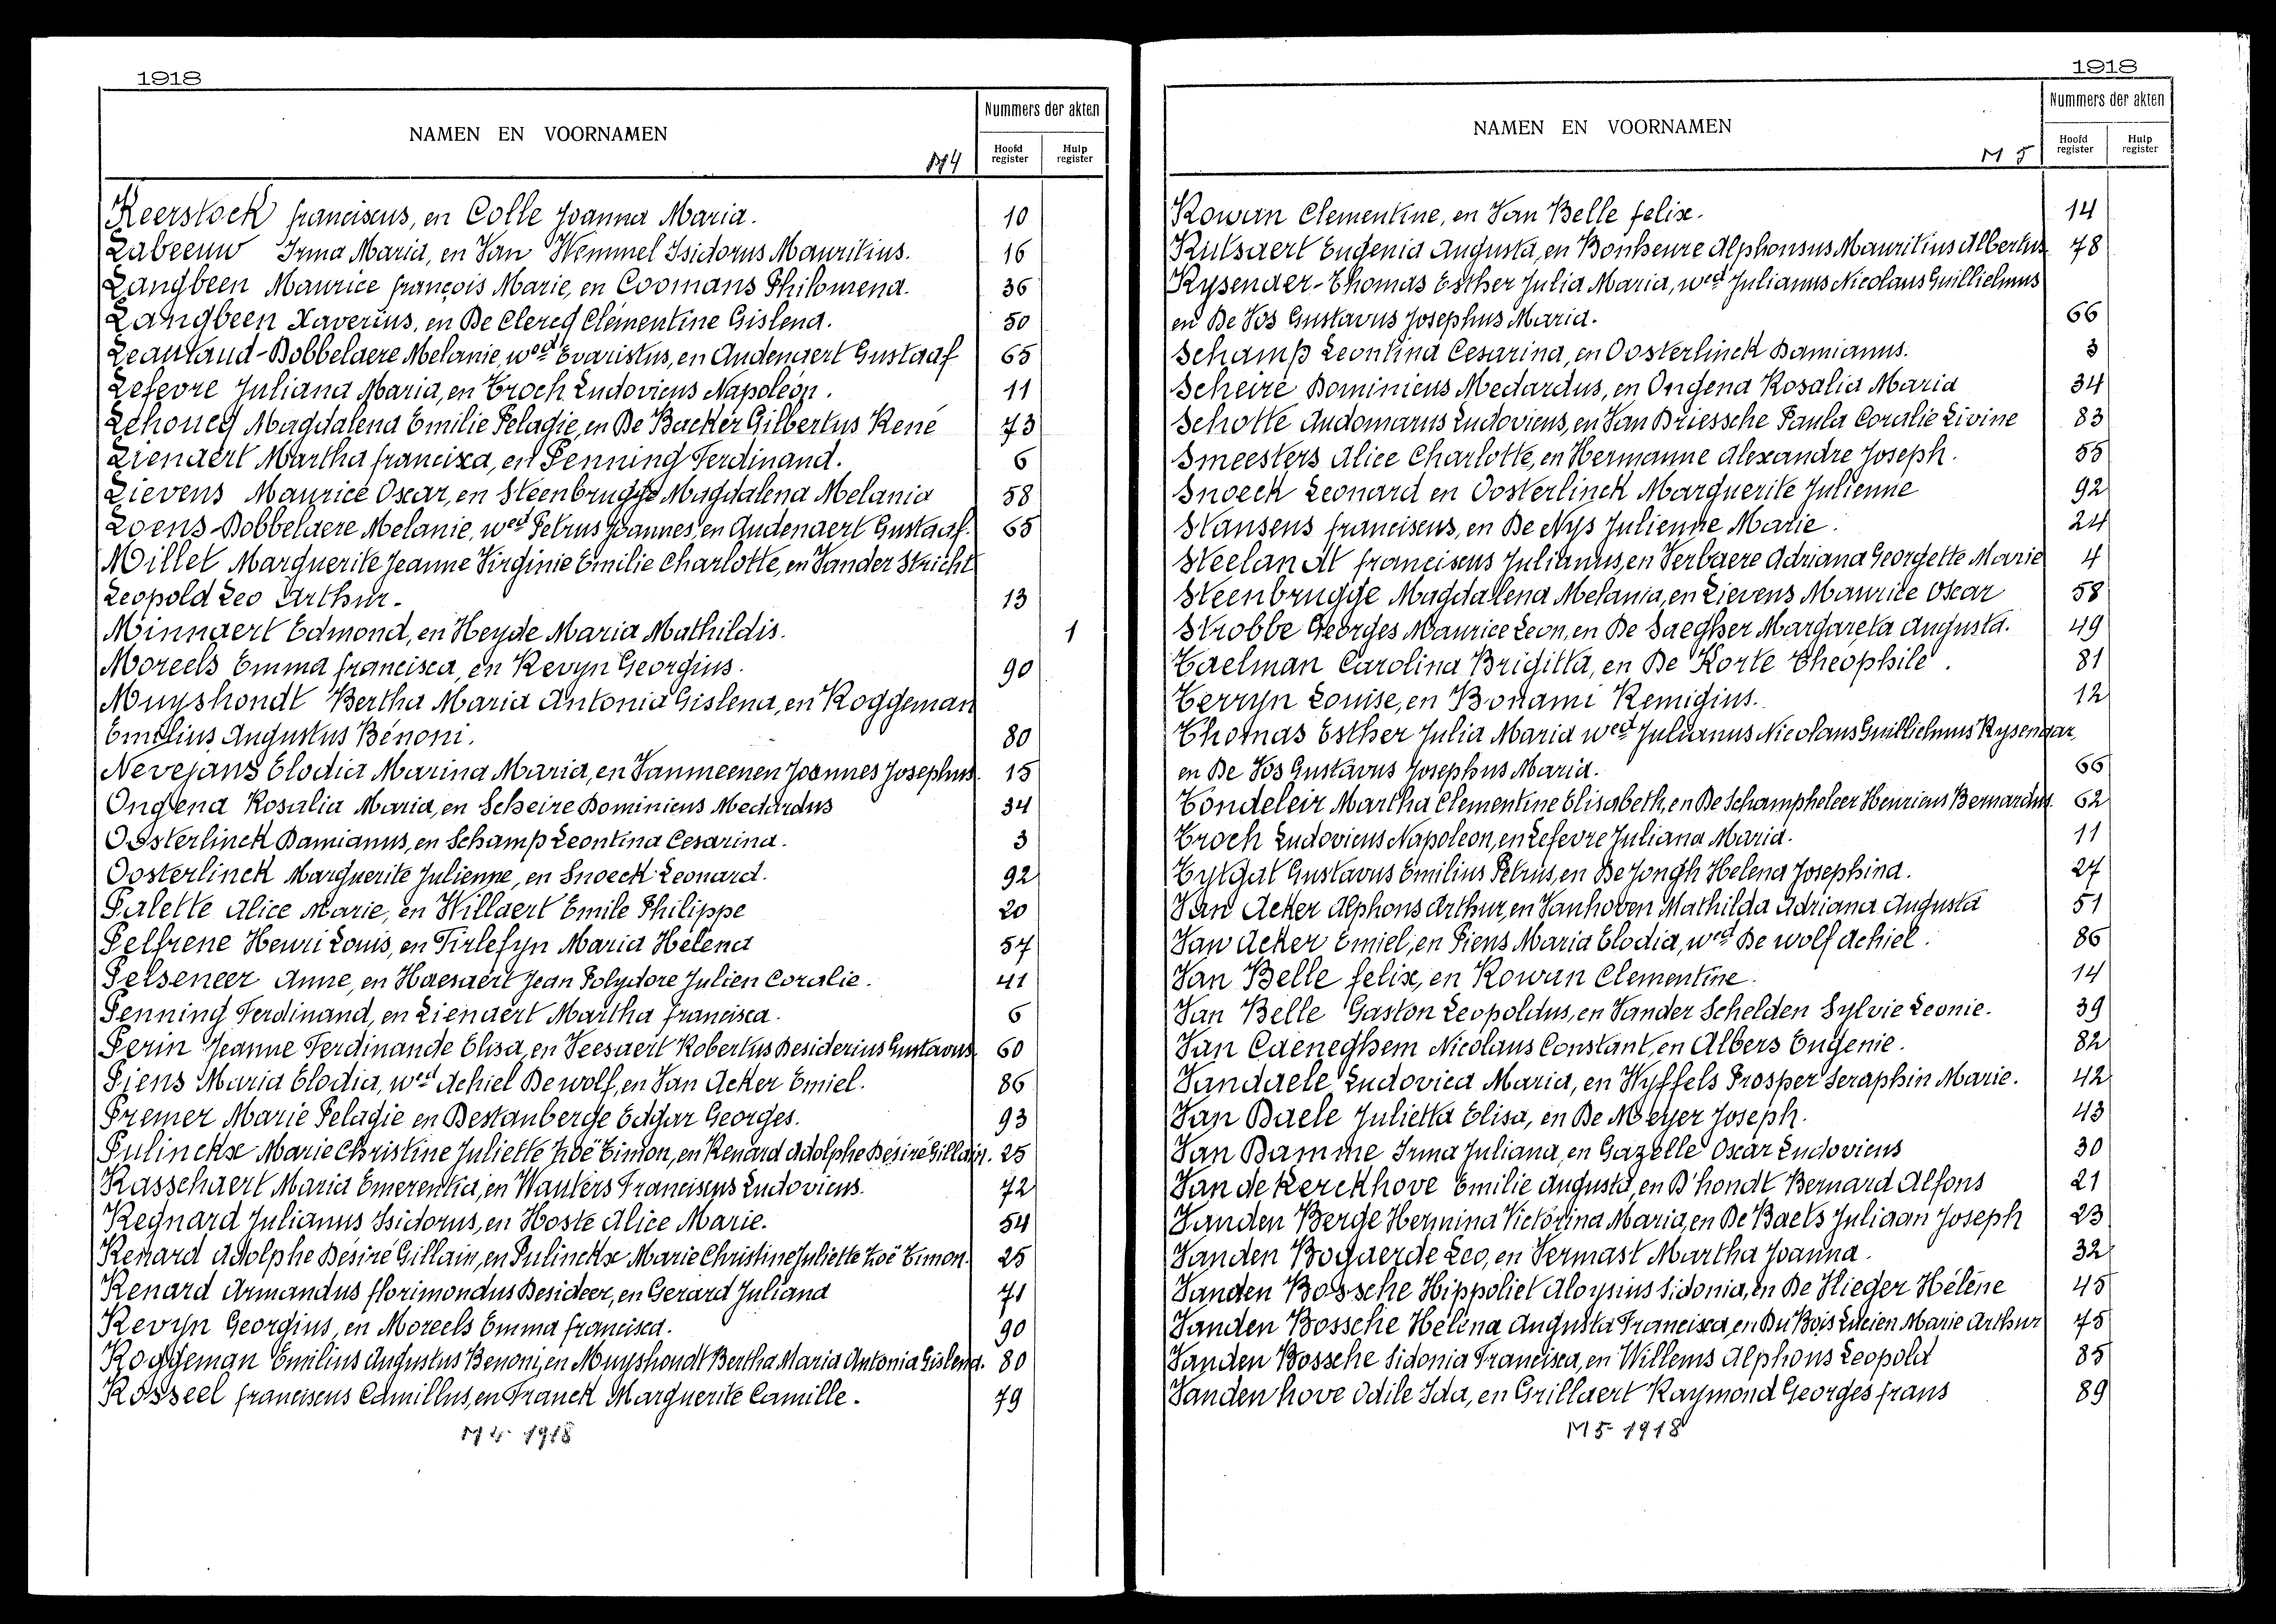 1918
NAMEN EN VOORNAMEN
Nummers der akten
Hoofd register
Hulp register
M4
Keerstock franciscus, en Colle Joanna Maria. 10
Labeeuw Irma Maria, en Van Wemmel Isidorus Mauritius. 16
Langbeen Maurice françois Marie, en Coomans Philomena. 36
Langbeen Xaverius, en De Clercq Clémentine Gislena. 50
Leautaud-Dobbelaere Melanie, wed Evaristus, en Audenaert Gustaaf 65
Lefevre Juliana Maria, en Troch Ludovicus Napoléon. 11
Lehoucq Magdalena Emilie Pelagie, en De Backer Gilbertus René 73
Lienaert Martha francisca, en Penning Ferdinand. 6
Lievens Maurice Oscar, en Steenbrugge Magdalena Melania 58
Loens-Dobbelaere Melanie, wed Petrus Joannes, en Audenaert Gustaaf. 65
Millet Marguerite Jeanne Virginie Emilie Charlotte, en Vander Stricht
Leopold Leo Arthur. 13
Minnaert Edmond, en Heyde Maria Mathildis. 1
Moreels Emma francisca, en Revyn Georgius. 90
Muyshondt Bertha Maria Antonia Gislena, en Roggeman
Emilius Augustus Bénoni. 80
Nevejans Elodia Marina Maria, en Vanmeenen Joannes Josephus. 15
Ongena Rosalia Maria, en Scheire Dominicus Medardus 34
Oosterlinck Damianus, en Schamp Leontina Cesarina. 3
Oosterlinck Marguerite Julienne, en Snoeck Leonard. 92
Palette Alice Marie, en Willaert Emile Philippe 20
Pelfrene Henri Louis, en Tirlefyn Maria Helena 57
Pelseneer Anne, en Haesaert Jean Polydore Julien Coralie. 41
Penning Ferdinand, en Lienaert Martha francisca. 6
Perin Jeanne Ferdinande Elisa, en Veesaert Robertus Desiderius Gustavus. 60
Piens Maria Elodia, wed Achiel De wolf, en Van Acker Emiel. 86
Premer Marie Pelagie en Destanberge Edgar Georges. 93
Pulinckx Marie Christine Juliette Zoë Timon, en Renard Adolphe Désiré Gillain. 25
Rasschaert Maria Emerentia, en Wauters Franciscus Ludovicus. 72
Regnard Julianus Isidorus, en Hoste Alice Marie. 54
Renard Adolphe Désiré Gillain, en Pulinckx Marie Christine Juliette Zoë Timon. 25
Renard Armandus florimondus Desideer, en Gerard Juliana 71
Revyn Georgius, en Moreels Emma francisca. 90
Roggeman Emilius Augustus Benoni, en Muyshondt Bertha Maria Antonia Gislena. 80
Rosseel franciscus Camillus, en Franck Marguerite Camille. 79
M4 1918
1918
NAMEN EN VOORNAMEN
Nummers der akten
Hoofd register
Hulp register
M 5
Rowan Clementine, en Van Belle felix. 14
Rutsaert Eugenia Augusta, en Bonheure Alphonsus Mauritius Albertus 78
Rysender-Thomas Esther Julia Maria, wed Julianus Nicolaus Guillielmus
en De Vos Gustavus Josephus Maria. 66
Schamp Leontina Cesarina, en Oosterlinck Damianus. 3
Scheire Dominicus Medardus, en Ongena Rosalia Maria 34
Schotte Audomarus Ludovicus, en Van Driessche Paula Coralie Livine 83
Smeesters Alice Charlotte, en Hermanne Alexandre Joseph. 55
Snoeck Leonard en Oosterlinck Marguerite Julienne 92
Stansens franciscus, en De Nys Julienne Marie. 24
Steelandt franciscus Julianus, en Verbaere Adriana Georgette Marie 4
Steenbrugge Magdalena Melania, en Lievens Maurice Oscar 58
Strobbe Georges Maurice Leon, en De Saegher Margareta Augusta. 49
Taelman Carolina Brigitta, en De Korte Théophile. 81
Terryn Louise, en Bonami Remigius. 12
Thomas Esther Julia Maria wed Julianus Nicolaus Guillielmus Rysendar,
en De Vos Gustavus Josephus Maria. 66
Tondeleir Martha Clementine Elisabeth, en De Schampheleer Henricus Bernardus. 62
Troch Ludovicus Napoleon, en Lefevre Juliana Maria. 11
Tytgat Gustavus Emilius Petrus, en De Jongh Helena Josephina. 27
Van Acker Alphons Arthur, en Vanhoven Mathilda Adriana Augusta 51
Van Acker Emiel, en Piens Maria Elodia, wed De wolf Achiel. 86
Van Belle felix, en Rowan Clementine. 14
Van Belle Gaston Leopoldus, en Vander Schelden Sylvie Leonie. 39
Van Caeneghem Nicolaus Constant, en Albers Eugenie. 82
Vandaele Ludovica Maria, en Wyffels Prosper Seraphin Marie. 42
Van Daele Julietta Elisa, en De Meyer Joseph. 43
Van Damme Irma Juliana, en Gazelle Oscar Ludovicus 30
Van de Kerckhove Emilie Augusta, en D'hondt Bernard Alfons 21
Vanden Berge Hermina Victorina Maria, en De Baets Juliaan Joseph 23
Vanden Bogaerde Leo, en Vermast Martha Joanna. 32
Vanden Bossche Hippoliet Aloysius Sidonia, en De Vlieger Hélène 45
Vanden Bossche Helena Augusta Francisca, en Du Bois Lucien Marie Arthur 75
Vanden Bossche Sidonia Francisca, en Willems Alphons Leopold 85
Vandenhove Odile Ida, en Grillaert Raymond Georges frans 89
M5- 1918